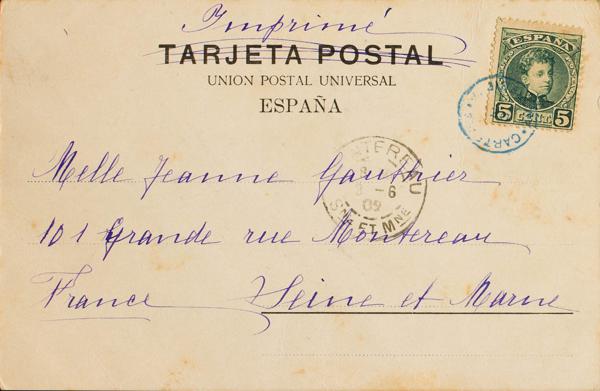 Imprimé
TARJETA POSTAL
UNION POSTAL UNIVERSAL
ESPAÑA
ESPAÑA
5 CENT. 5
CARTE
MONTEREAU
6
09
SNE ET MNE
Melle Jeanne Gauthier
101 Grande rue Montereau
France Seine et Marne